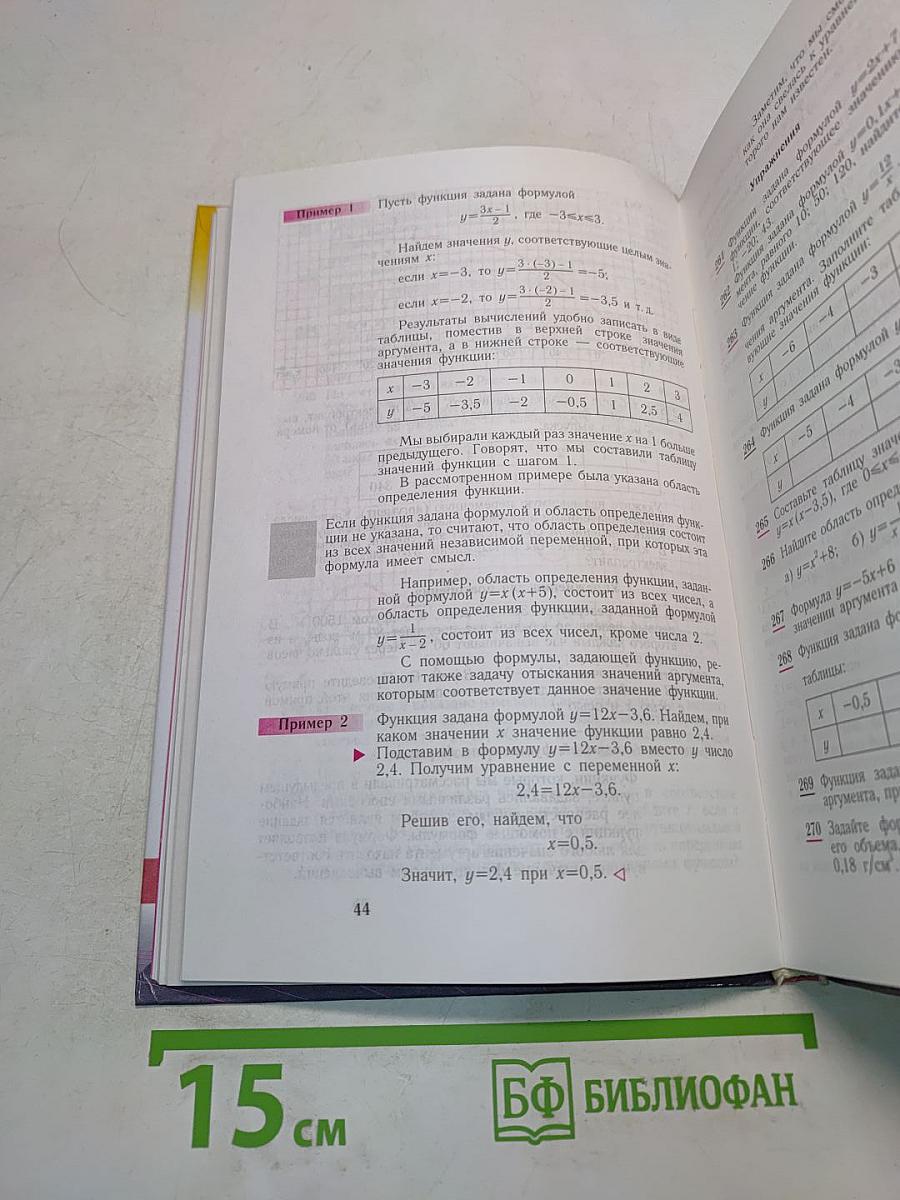 Пример 1
Пусть функция задана формулой
y=3x−1/2, где −3⩽x⩽3.
Найдем значения y, соответствующие целым зна-
чениям x:
если x=−3, то y=3·(−3)−1/2=−5;
если x=−2, то y=3·(−2)−1/2=−3,5 и т. д.
Результаты вычислений удобно записать в виде
таблицы, поместив в верхней строке значения
аргумента, а в нижней строке — соответствующие
значения функции:
x −3 −2 −1 0 1 2 3
y −5 −3,5 −2 −0,5 1 2,5 4
Мы выбирали каждый раз значение x на 1 больше
предыдущего. Говорят, что мы составили таблицу
значений функции с шагом 1.
В рассмотренном примере была указана область
определения функции.
Если функция задана формулой и область определения функ-
ции не указана, то считают, что область определения состоит
из всех значений независимой переменной, при которых эта
формула имеет смысл.
Например, область определения функции, задан-
ной формулой y=x(x+5), состоит из всех чисел, а
область определения функции, заданной формулой
y=1/x−2, состоит из всех чисел, кроме числа 2.
С помощью формулы, задающей функцию, ре-
шают также задачу отыскания значений аргумента,
которым соответствует данное значение функции.
Пример 2
Функция задана формулой y=12x−3,6. Найдем, при
каком значении x значение функции равно 2,4.
Подставим в формулу y=12x−3,6 вместо y число
2,4. Получим уравнение с переменной x:
2,4=12x−3,6.
Решив его, найдем, что
x=0,5.
Значит, y=2,4 при x=0,5.
44
Заметим, что мы
как она свелась к
торого нам известен.
Упражнения
261 Функция задана формулой y=2x+7
функции, соответствующее значению
−20; 43.
262 Функция задана формулой y=0,1x+
мента, равного 10; 50; 120, найдите
ние функции.
263 Функция задана формулой y=12/x
чения аргумента. Заполните
вующие значения функции:
x −6 −4 −3
y
264 Функция задана формулой y
x −5 −4
y
265 Составьте таблицу
y=x(x−3,5), где 0⩽x⩽
266 Найдите область
а) y=x²+8; б) y=
267 Формула y=−5x+6
значении аргумента
268 Функция задана
таблицы:
x −0,5
y
269 Функция
аргумента,
270 Задайте
его объема.
0,18 г/см³.
15 см
БФ БИБЛИОФАН